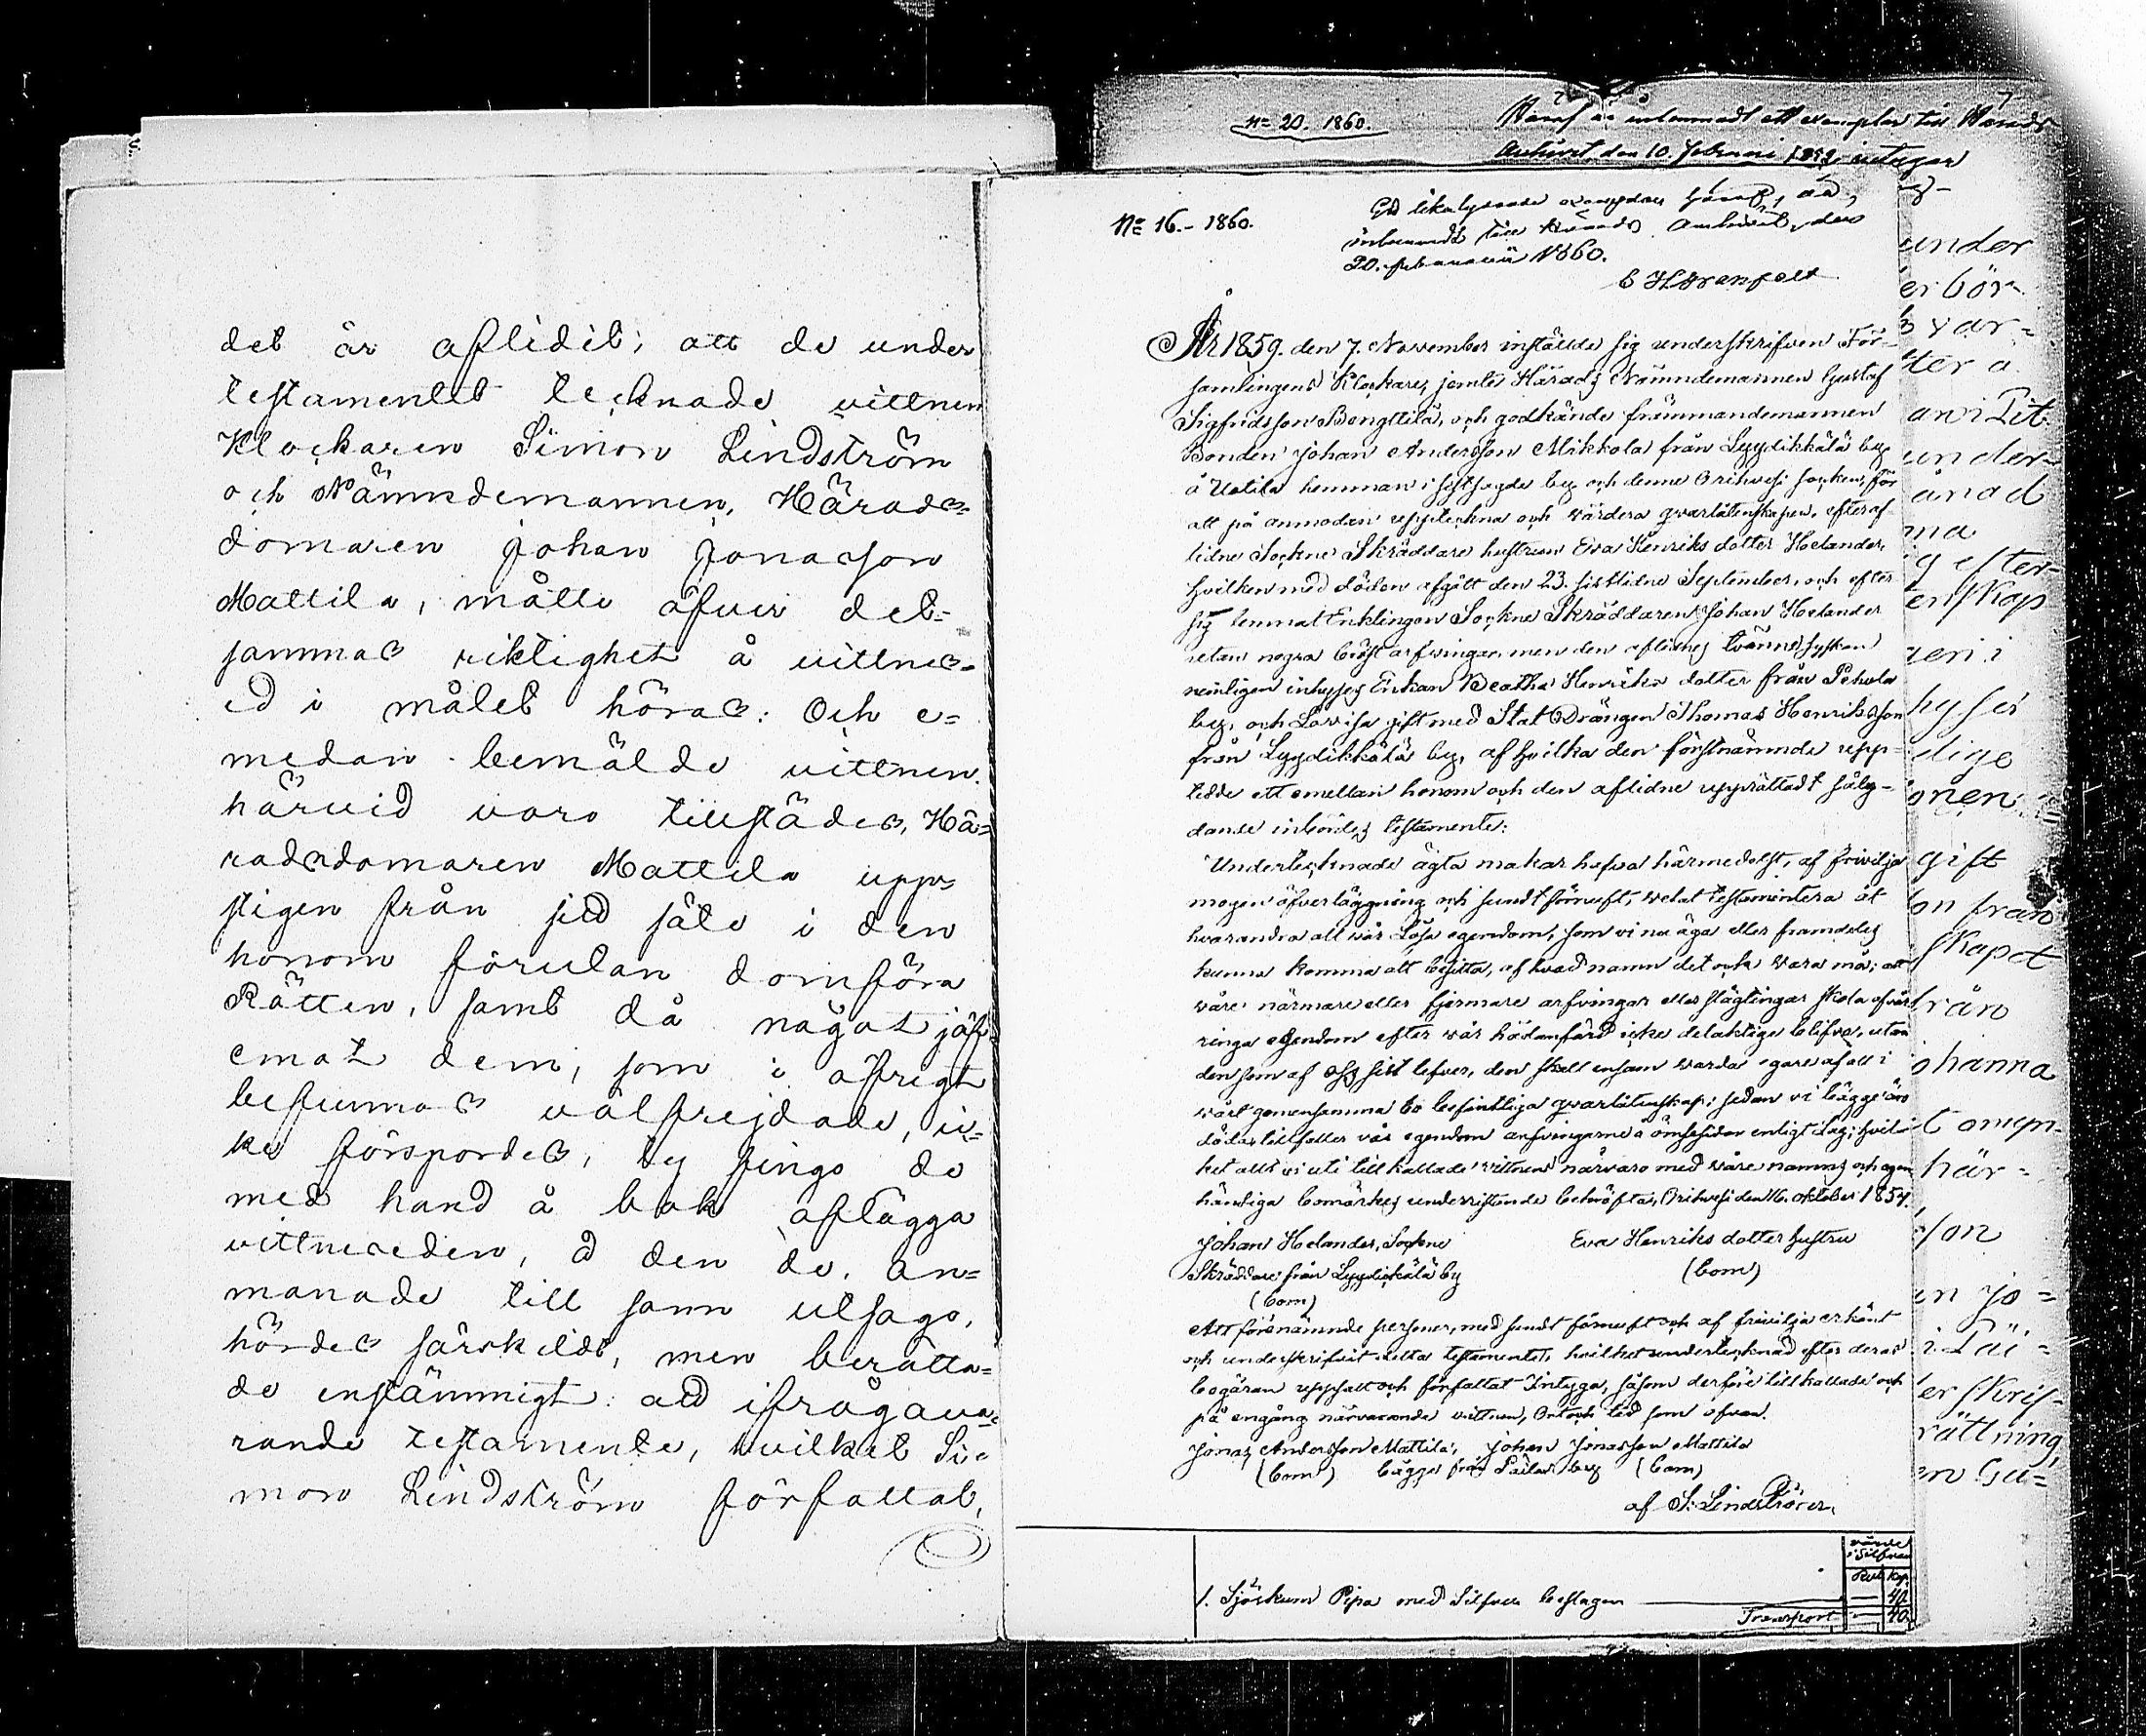 det är aflidit; att de under
testamentet tecknade vittnen
Klockaren Simon Lindström
och Nämndemannen, Härads-
domaren Johan Jonasson
Mattila, måtte öfver det-
sammas riktighet å vittnes-
ed i målet höras: Och e-
medan bemälde vittnen
härvid voro tillstädes, Hä-
radsdomaren Mattila upp-
stigen från sitt säte i den
honom förutan domföra
Rätten, samt då något jäf
emot dem, som i öfrigt
befunnos välfrejdade, ic-
ke förspordes, ty fingo de
med hand å bok aflägga
vittneseden, å den de, an-
manade till sann utsago,
hördes särskildt, men berätta-
de enstämmigt: att ifrågava-
rande testamente, hvilket Si-
mon Lindström författat,
No 20. 1860.
Häraf är inlemnadt ett exemplar till Härads
Arkivet den 10. Februari intygar
No 16.- 1860.
Ett lika lydande exemplar häraf, är
inlemnadt till Härads Arkivet, den
20. februarii 1860.
År 1859. den 7. November instälde sig underskrifven För-
samlingens Klockare, jemte Härads Nämndemannen Gustaf
Sigfridsson Bengttilä, och godkände främmandemannen
Bonden Johan Andersson Mikkola från Lyydikkälä by
å Uotila hemman i sistsagde by och denne Orihvesi socken, för
att på anmodan uppteckna och värdera qvarlåtenskapen, efter af-
lidne Sockne Skräddare hustrun Eva Henriks dotter Helander,
hvilken med döden afgått den 23. sistlidne September, och efter
sig lemnat Enklingen Sockne Skräddaren Johan Helander
utan några bröst arfvingar, men den aflidnes tvänne syskon
nemligen inhyses Enkan Beatha Henriks dotter från Pehula
by, och Lovisa gift med Stat Drängen Thomas Henriksson
från Lyydikkälä by, af hvilka den förstnämnde upp-
tedde ett emellan honom och den aflidne upprättadt följ-
dande inbördes testamente:
Undertecknade ägta makar hafva härmedelst, af frivilja
mogen öfverläggning och sundt förnuft, velat testamentera åt
hvarandra all vår Lösa egendom, som vi nu äga eller framdeles
kunna komma att besitta, af hvad namn det ock vara må; att
våre närmare eller fjermare arfvingar eller slägtingar skola af vår
ringa egendom efter vår hädanfärd icke delaktige blifva, utan
den som af oss sist lefver, den skall ensam varda egare af allt i
vårt gemensamma bo befintliga qvarlåtenskap; sedan vi bägge äro
döda tillfaller vår egendom arfvingarne å ömsesidor enligt Lag; hvil-
ket allt vi uti tillkallade vittnens närvaro med våre namns och egen
händiga bomärkes underristande bekräfta, Orihvesi den 16. oktober 1854.
Johan Helander, Sockne Eva Henriks dotter hustru
Skräddare från Lyydikkälä by (bom)
(bom)
Att förenämnde personer, med sundt förnuft och af frivilja erkänt
och underskrifvit detta testamentet, hvilket undertecknad efter deras
begäran uppsatt och författat Intyga, såsom derföre tillkallade och
på engång närvarande vittnen, Ort och tid som ofvan.
Jonas Andersson Mattila, Johan Jonasson Mattila
(bom) bägge från by (bom)
af S. Lindström.
värde
i Silfver
Rub. kop.
1. Sjöskum Pipa med Silfver beslagen — 40.
Transport — 40.
under
er bör-
var-
ter a
under-
ånad
ma
g efter-
enskap
ren i
hyses
dige
onen
gift
on från
skapet
från
ohanna
här-
son
en Jo-
erskrif-
rättning
en Gu-